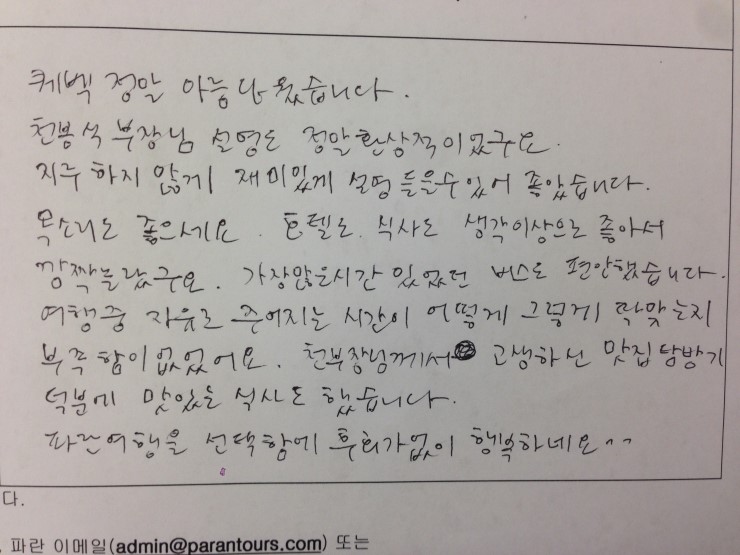 퀘벡 정말 아름다웠습니다.
천봉석 부장님 설명도 정말 환상적이었구요.
지루하지 않게 재미있게 설명 들을 수 있어 좋았습니다.
목소리도 좋으세요. 호텔도. 식사도 생각이상으로 좋아서
깜짝 놀랐구요. 가장많은시간 있었던 버스도 편안했습니다.
여행중 자유로 주어지는 시간이 어떻게 그렇게 딱맞는지
부족함이 없었어요. 천부장님께서 고생하신 맛집탐방기
덕분에 맛있는 식사도 했습니다.
파란여행을 선택함에 후회가없이 행복하네요^^
다.
파란 이메일(admin@parantours.com) 또는